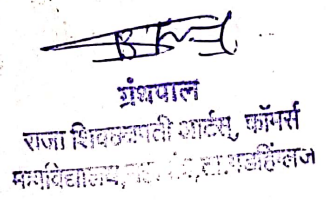 ग्रंथपाल
राजा शिवछत्रपती आर्टस्, कॉमर्स
महाविद्यालय, ता.गडहिंग्लज